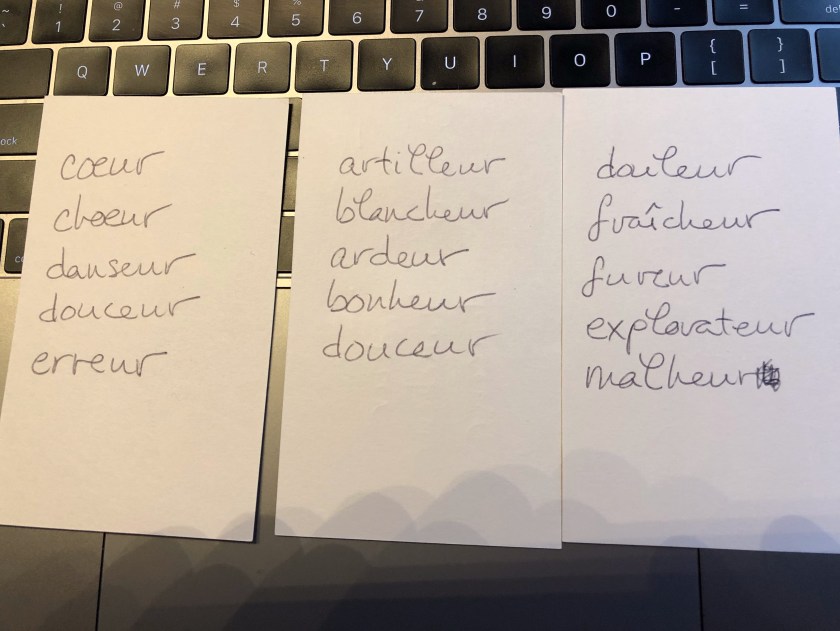 ~ ! @ # $ %
` 1 2 3 4 5 6 7 8 9 0 - =
Q W E R T Y U I O P { [ } ]
cœur
chœur
danseur
douceur
erreur
artilleur
blancheur
ardeur
bonheur
douceur
douleur
fraîcheur
fureur
explorateur
malheur